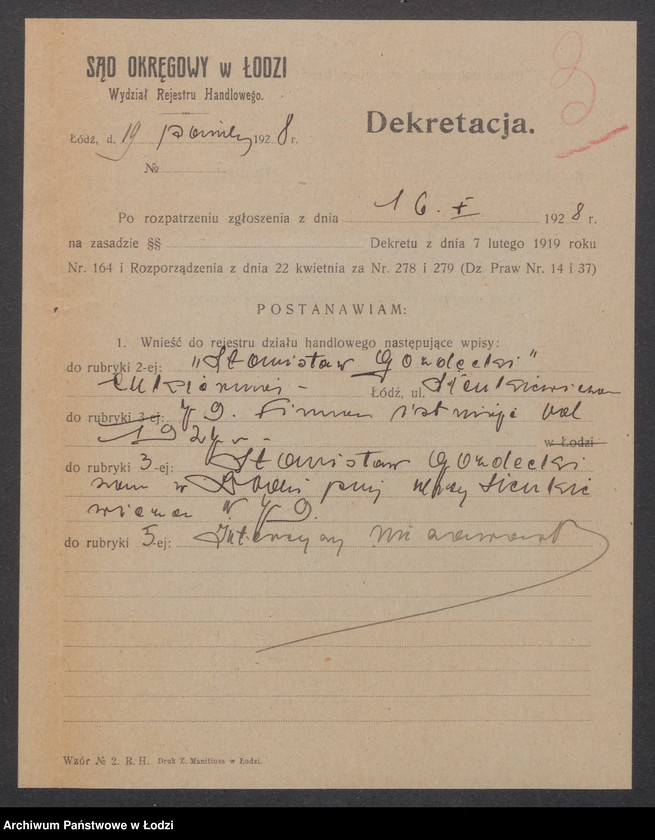 SĄD OKRĘGOWY w ŁODZI
Wydział Rejestru Handlowego.
3
Dekretacja.
Łódź, d. 19 paźdz 1928 r.
№
Po rozpatrzeniu zgłoszenia z dnia 16. X 1928 r.
na zasadzie §§ Dekretu z dnia 7 lutego 1919 roku
Nr. 164 i Rozporządzenia z dnia 22 kwietnia za Nr. 278 i 279 (Dz Praw Nr. 14 i 37)
POSTANAWIAM:
1. Wnieść do rejestru działu handlowego następujące wpisy:
do rubryki 2-ej: "Stanisław Gozdecki"
Cukiernia - Łódź, ul. Sienkiewicza
do rubryki 3-ej: 79. Firma istnieje od
1924 r. - w Łodzi
do rubryki 3-ej: Stanisław Gozdecki
zam w Łodzi przy ulicy Sienkie
wicza № 79.
do rubryki 5-ej: Intercyzy nie zawarł
Wzór № 2. R. H. Druk Z. Manitiusa w Łodzi.
Archiwum Państwowe w Łodzi